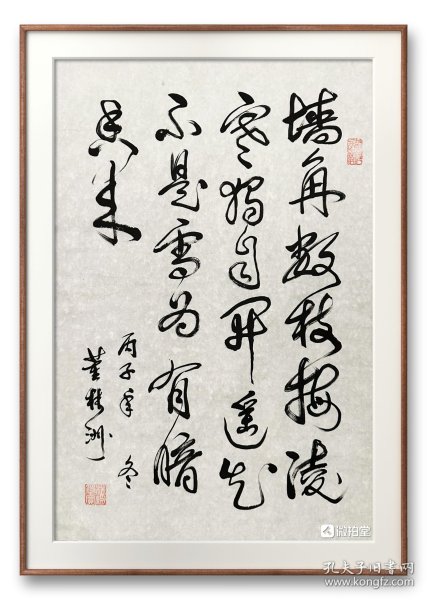 墙角数枝梅陵
寒独自开遥知
不是雪为有暗
香来
丙子年冬
董桂洲
微拍堂
孔夫子旧书网
www.kongfz.com